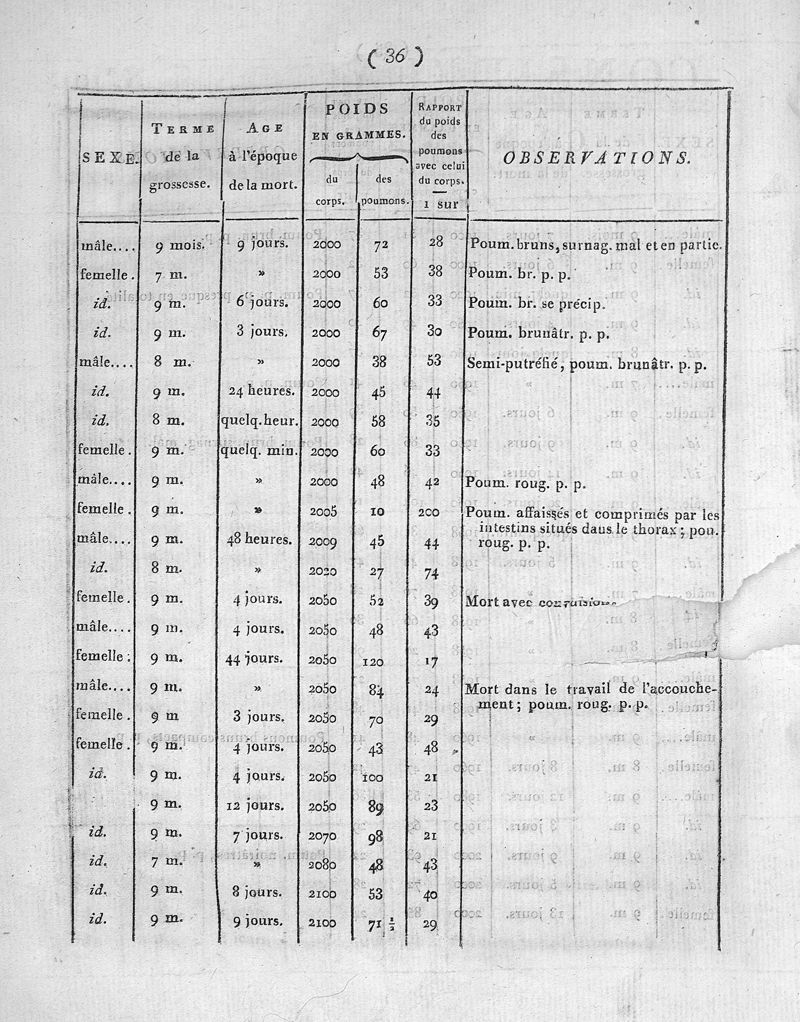 ( 36 )
SEXE. TERME de la grossesse. AGE à l'époque de la mort. POIDS EN GRAMMES. du corps. des poumons. RAPPORT du poids des poumons avec celui du corps. 1 sur OBSERVATIONS.
mâle.... 9 mois. 9 jours. 2000 72 28 Poum. bruns, surnag. mal et en partie.
femelle. 7 m. » 2000 53 38 Poum. br. p. p.
id. 9 m. 6 jours. 2000 60 33 Poum. br. se précip.
id. 9 m. 3 jours. 2000 67 30 Poum. brunâtr. p. p.
mâle.... 8 m. » 2000 38 53 Semi-putréfié, poum. brunâtr. p. p.
id. 9 m. 24 heures. 2000 45 44
id. 8 m. quelq. heur. 2000 58 35
femelle. 9 m. quelq. min. 2000 60 33
mâle.... 9 m. » 2000 48 42 Poum. roug. p. p.
femelle. 9 m. » 2005 10 200 Poum. affaissés et comprimés par les
intestins situés dans le thorax; pou.
mâle.... 9 m. 48 heures. 2009 45 44 roug. p. p.
id. 8 m. » 2020 27 74
femelle. 9 m. 4 jours. 2050 52 39 Mort avec convulsions
mâle.... 9 m. 4 jours. 2050 48 43
femelle. 9 m. 44 jours. 2050 120 17
mâle.... 9 m. » 2050 84 24 Mort dans le travail de l'accouche-
ment; poum. roug. p. p.
femelle. 9 m 3 jours. 2050 70 29
femelle. 9 m. 4 jours. 2050 43 48
id. 9 m. 4 jours. 2050 100 21
9 m. 12 jours. 2050 89 23
id. 9 m. 7 jours. 2070 98 21
id. 7 m. » 2080 48 43
id. 9 m. 8 jours. 2100 53 40
id. 9 m. 9 jours. 2100 71 1/2 29